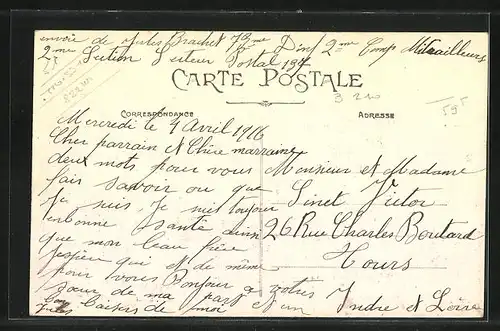 envoie de Jules Brachet 79me Dinf 2me Comp Mitrailleurs
2me Section Secteur Postal 194
CARTE POSTALE
CORRESPONDANCE
ADRESSE
Mercredi le 4 Avril 1916
Cher parrain et Chère marraine
deux mots pour vous
fais savoir ou que
Je suis, je suis toujour
enbonne santé ainsi
que mon beau frère
j'espjer qui et de même
pour vous Bonjour a votres
sœur de ma part et un
Gros baisers de moi
Jules
Monsieur et Madame
Sinet Victor
26 Rue Charles Boutard
Tours
Indre et Loire